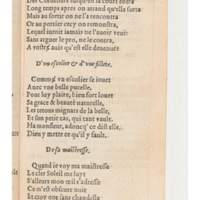 Long temps apres on attand qu'elle sorte
Mais au sortir on ne l'a rencontra
Or au portier en ce y remonstra,
Lequel iuroit iamais ne l'auoir veuë:
Sans arguer le pro, ne le contra,
A vostre auis qu'est elle deuenuë
D'vn escolier & d'vne fillette.
Comme vn escolier se iouet
Auec vne belle pucelle,
Pour luy plaire, bien fort louet
Sa grace & beauté naturelle,
Les tetons mignars de la belle,
Et son petit cas, qui tant vault.
Ha monsieur, adonc q' ce dist elle,
Dieu y mette ce qu'il y fault.
De sa maistresse.
Quand ie voy ma maistresse
Le cler Soleil me luyt
S'ailleurs mon œil s'adresse
Ce m'est obscure nuit
Et croy que sans chandelle